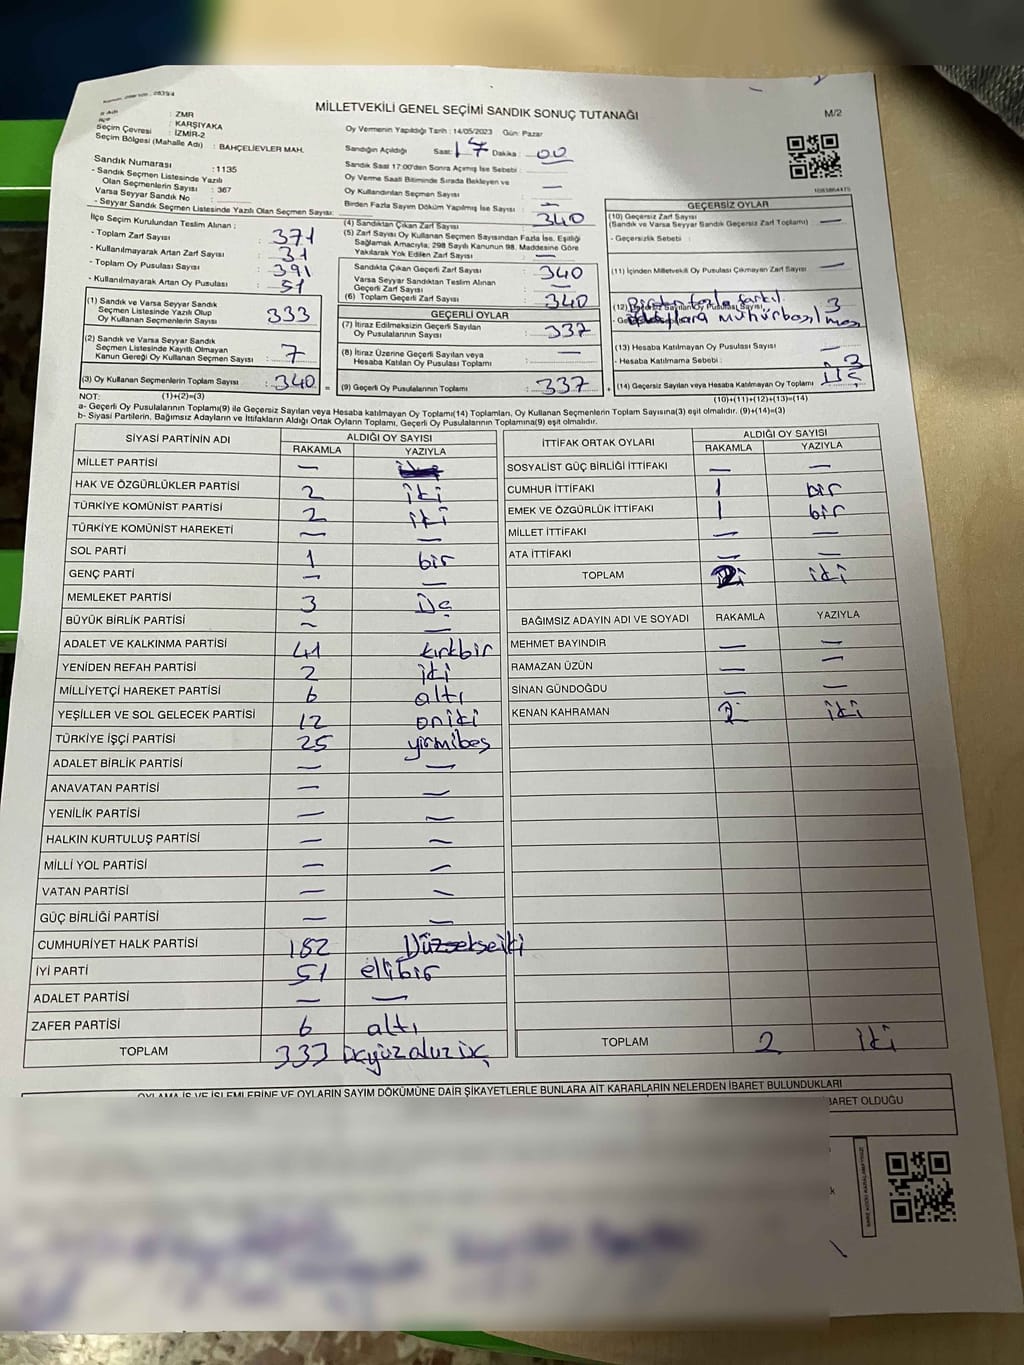 MİLLETVEKİLİ GENEL SEÇİMİ SANDIK SONUÇ TUTANAĞI
M/2
: ZMR
: KARŞIYAKA
Seçim Çevresi : İZMİR-2
Seçim Bölgesi (Mahalle Adı) : BAHÇELİEVLER MAH.
Sandık Numarası : 1135
- Sandık Seçmen Listesinde Yazılı
Olan Seçmenlerin Sayısı : 367
Varsa Seyyar Sandık No :
- Seyyar Sandık Seçmen Listesinde Yazılı Olan Seçmen Sayısı:
İlçe Seçim Kurulundan Teslim Alınan :
- Toplam Zarf Sayısı : 371
- Kullanılmayarak Artan Zarf Sayısı : 31
- Toplam Oy Pusulası Sayısı : 391
- Kullanılmayarak Artan Oy Pusulası : 51
(1) Sandık ve Varsa Seyyar Sandık
Seçmen Listesinde Yazılı Olup
Oy Kullanan Seçmenlerin Sayısı : 333
(2) Sandık ve Varsa Seyyar Sandık
Seçmen Listesinde Kayıtlı Olmayan
Kanun Gereği Oy Kullanan Seçmen Sayısı : 7
(3) Oy Kullanan Seçmenlerin Toplam Sayısı : 340 =
Oy Vermenin Yapıldığı Tarih : 14/05/2023 Gün: Pazar
Sandığın Açıldığı Saat: 17 Dakika : 00
Sandık Saat 17:00'den Sonra Açılmış İse Sebebi :
Oy Verme Saati Bitiminde Sırada Bekleyen ve
Oy Kullandırılan Seçmen Sayısı : —
Birden Fazla Sayım Döküm Yapılmış İse Sayısı : —
(4) Sandıktan Çıkan Zarf Sayısı : 340
(5) Zarf Sayısı Oy Kullanan Seçmen Sayısından Fazla İse, Eşitliği
Sağlamak Amacıyla; 298 Sayılı Kanunun 98. Maddesine Göre
Yakılarak Yok Edilen Zarf Sayısı : —
Sandıkta Çıkan Geçerli Zarf Sayısı : 340
Varsa Seyyar Sandıktan Teslim Alınan
Geçerli Zarf Sayısı : —
(6) Toplam Geçerli Zarf Sayısı : 340
GEÇERLİ OYLAR
(7) İtiraz Edilmeksizin Geçerli Sayılan
Oy Pusulalarının Sayısı : 337
(8) İtiraz Üzerine Geçerli Sayılan veya
Hesaba Katılan Oy Pusulası Toplamı : —
(9) Geçerli Oy Pusulalarının Toplamı : 337 +
GEÇERSİZ OYLAR
(10) Geçersiz Zarf Sayısı
(Sandık ve Varsa Seyyar Sandık Geçersiz Zarf Toplamı) : —
- Geçersizlik Sebebi :
(11) İçinden Milletvekili Oy Pusulası Çıkmayan Zarf Sayısı : —
Birden fazla farklı
3
mühür basılması
(13) Hesaba Katılmayan Oy Pusulası Sayısı : —
- Hesaba Katılmama Sebebi :
3
(14) Geçersiz Sayılan veya Hesaba Katılmayan Oy Toplamı : ÜÇ
NOT: (1)+(2)=(3)
(10)+(11)+(12)+(13)=(14)
a- Geçerli Oy Pusulalarının Toplamı(9) ile Geçersiz Sayılan veya Hesaba katılmayan Oy Toplamı(14) Toplamları, Oy Kullanan Seçmenlerin Toplam Sayısına(3) eşit olmalıdır. (9)+(14)=(3)
b- Siyasi Partilerin, Bağımsız Adayların ve İttifakların Aldığı Ortak Oyların Toplamı, Geçerli Oy Pusulalarının Toplamına(9) eşit olmalıdır.
SİYASİ PARTİNİN ADI ALDIĞI OY SAYISI
RAKAMLA YAZIYLA
MİLLET PARTİSİ —
HAK VE ÖZGÜRLÜKLER PARTİSİ 2 iki
TÜRKİYE KOMÜNİST PARTİSİ 2 iki
TÜRKİYE KOMÜNİST HAREKETİ — —
SOL PARTİ 1 bir
GENÇ PARTİ — —
MEMLEKET PARTİSİ 3 Üç
BÜYÜK BİRLİK PARTİSİ — —
ADALET VE KALKINMA PARTİSİ 41 kırkbir
YENİDEN REFAH PARTİSİ 2 iki
MİLLİYETÇİ HAREKET PARTİSİ 6 altı
YEŞİLLER VE SOL GELECEK PARTİSİ 12 oniki
TÜRKİYE İŞÇİ PARTİSİ 25 yirmibeş
ADALET BİRLİK PARTİSİ — —
ANAVATAN PARTİSİ — —
YENİLİK PARTİSİ — —
HALKIN KURTULUŞ PARTİSİ — —
MİLLİ YOL PARTİSİ — —
VATAN PARTİSİ — —
GÜÇ BİRLİĞİ PARTİSİ — —
CUMHURİYET HALK PARTİSİ 182 Yüzsekseniki
İYİ PARTİ 51 ellibir
ADALET PARTİSİ — —
ZAFER PARTİSİ 6 altı
TOPLAM 333 üçyüzotuzüç
İTTİFAK ORTAK OYLARI ALDIĞI OY SAYISI
RAKAMLA YAZIYLA
SOSYALİST GÜÇ BİRLİĞİ İTTİFAKI — —
CUMHUR İTTİFAKI 1 bir
EMEK VE ÖZGÜRLÜK İTTİFAKI 1 bir
MİLLET İTTİFAKI — —
ATA İTTİFAKI — —
TOPLAM 2 iki
BAĞIMSIZ ADAYIN ADI VE SOYADI RAKAMLA YAZIYLA
MEHMET BAYINDIR — —
RAMAZAN ÜZÜN — —
SİNAN GÜNDOĞDU — —
KENAN KAHRAMAN 2 iki
TOPLAM 2 iki
OYLAMA İŞ VE İŞLEMLERİNE VE OYLARIN SAYIM DÖKÜMÜNE DAİR ŞİKAYETLERLE BUNLARA AİT KARARLARIN NELERDEN İBARET BULUNDUKLARI
BARET OLDUĞU